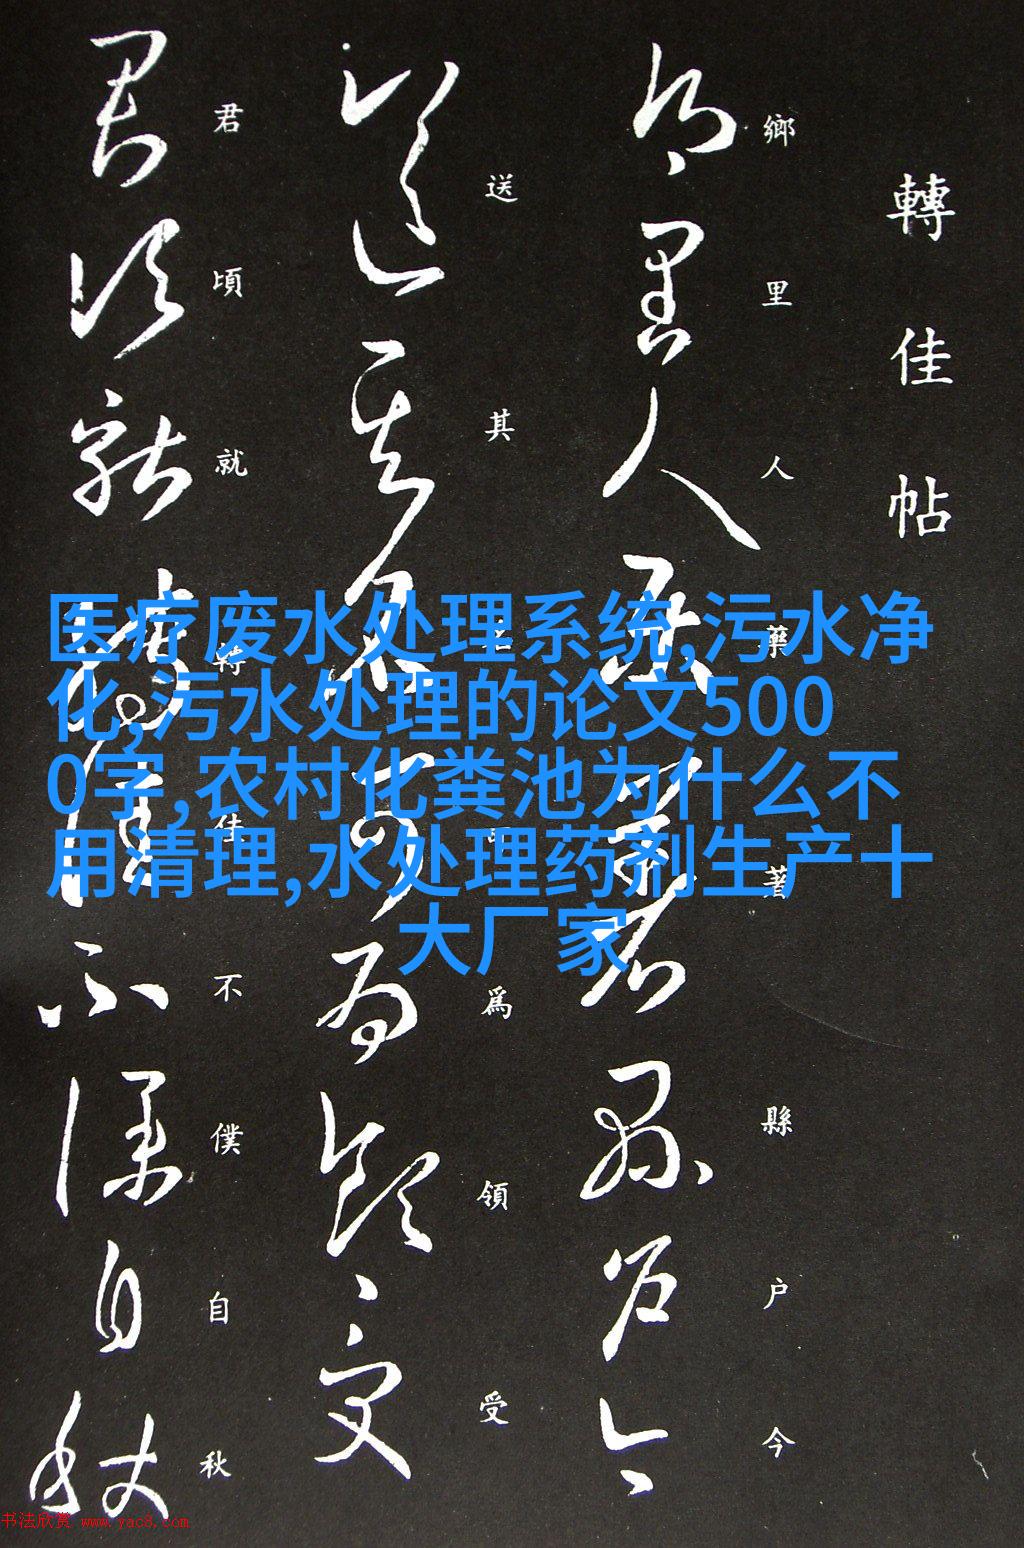 轉佳帖
鄉里人藥著縣户今
送其名可爲領受
君頃就轉佳不僕自秋
医疗废水处理系统,污水净
化,污水处理的论文500
0字,农村化粪池为什么不
用清理,水处理药剂生产十
大厂家
书法欣赏 www.yac8.com